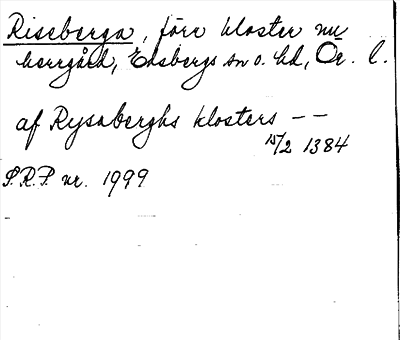 Riseberga, förr kloster nu
herrgård, Edsbergs sn o. hd, Ör. l.
af Rysaberghs klosters – –
15/2 1384
S.R.P. nr. 1999